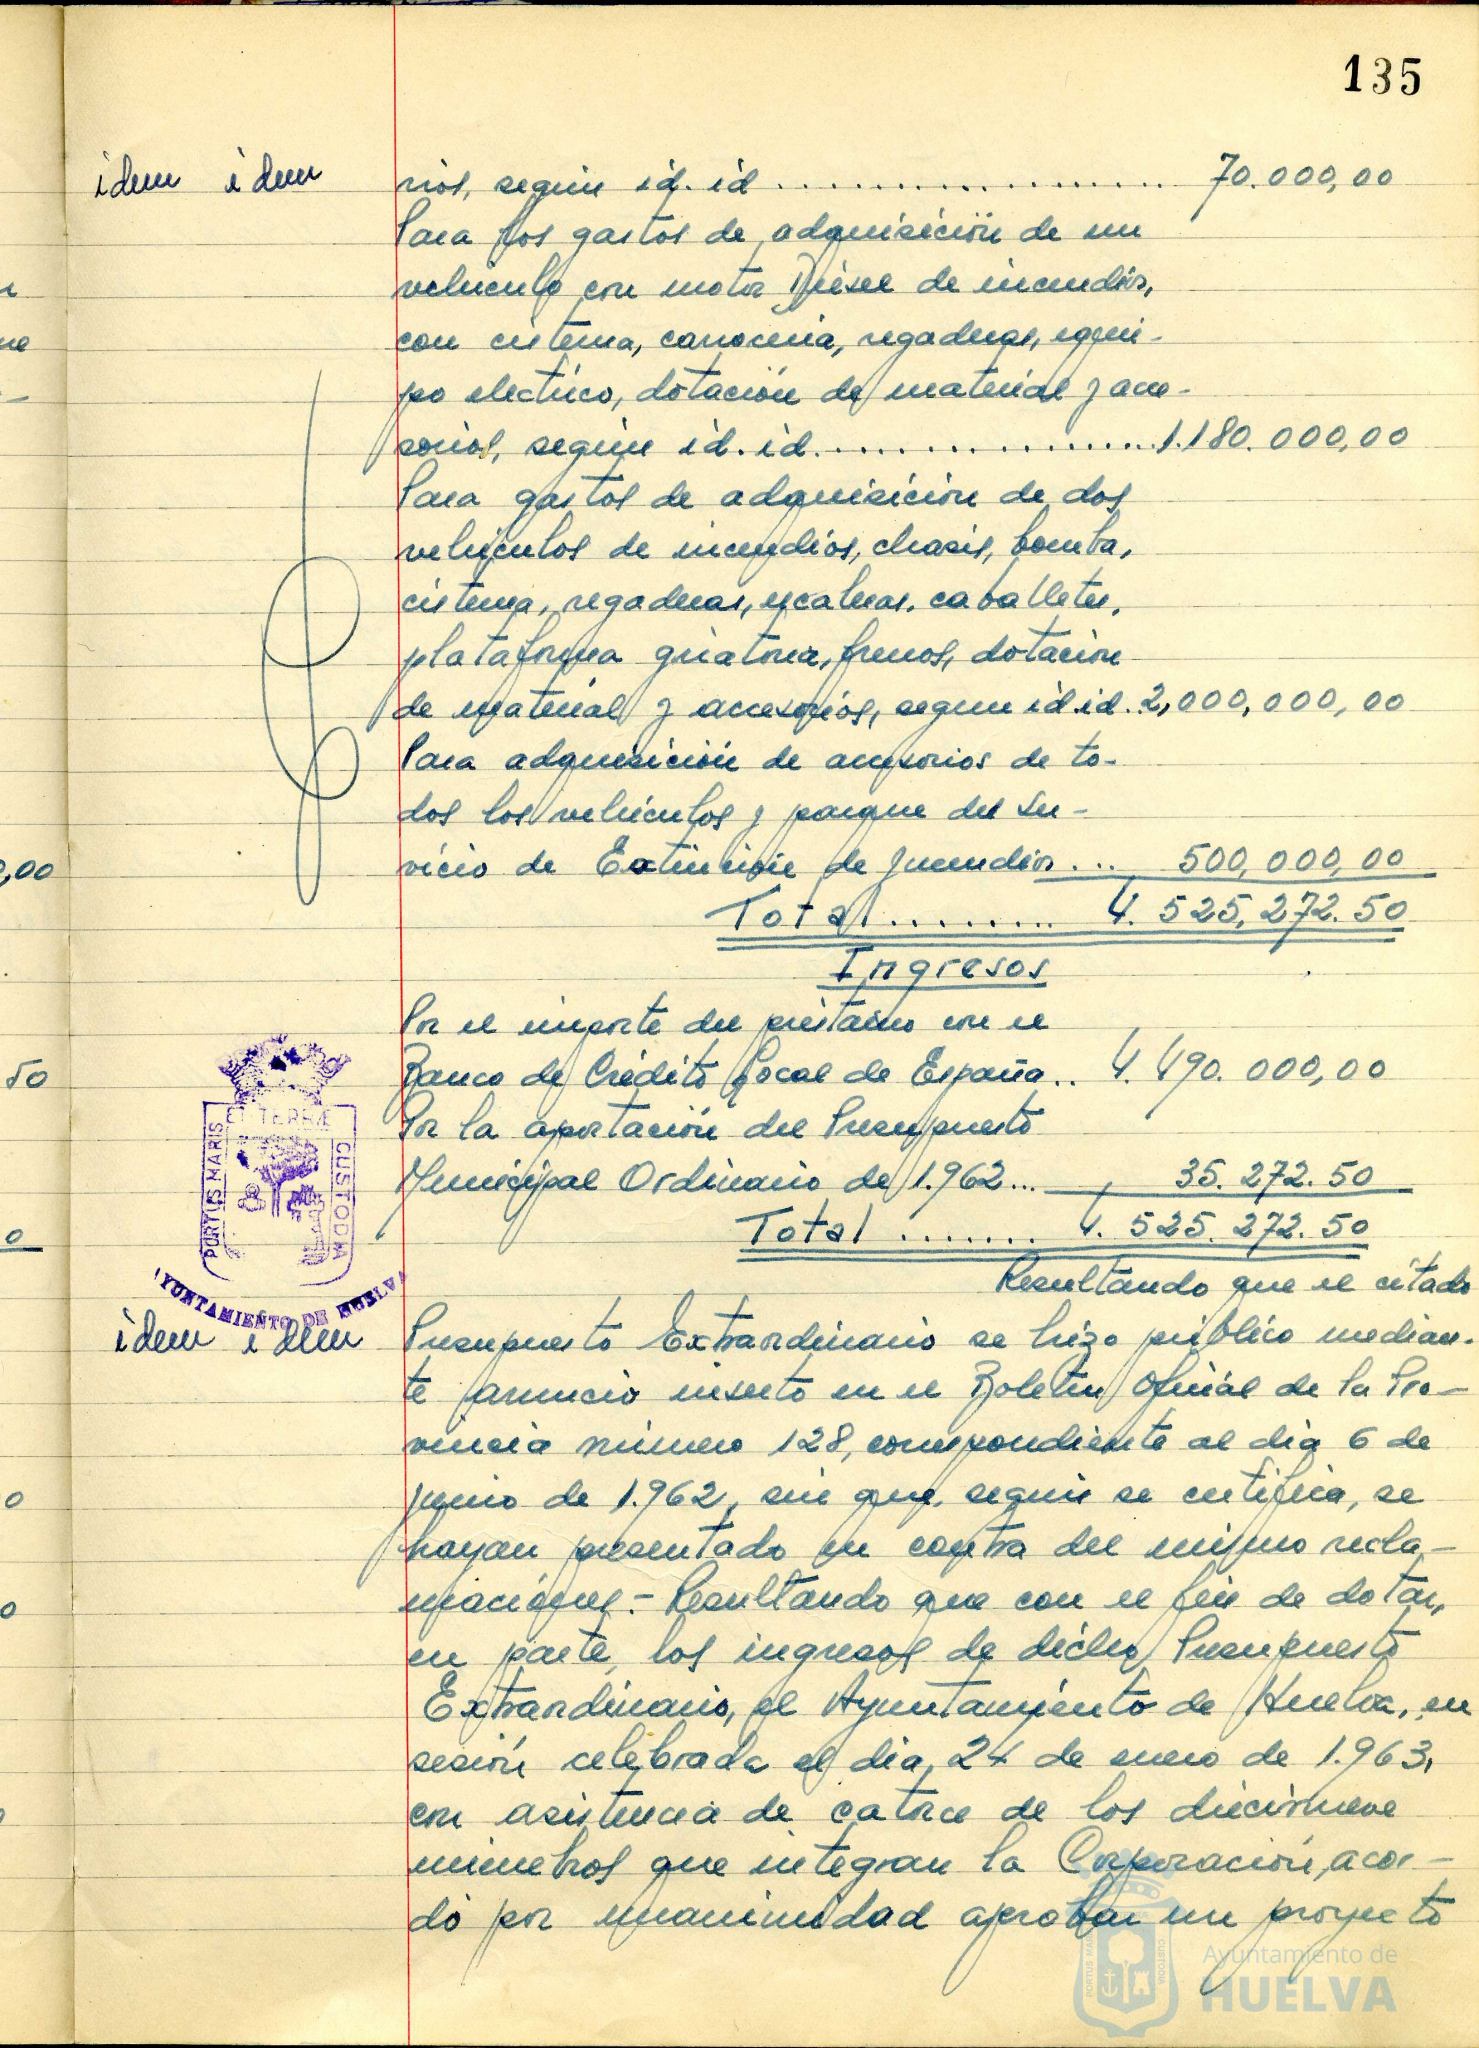 135
idem idem
rios, según id. id .................. 70.000,00
Para los gastos de adquisición de un
vehículo con motor Diesel de incendios,
con cisterna, carrocería, regaderas, equi-
po electrico, dotación de material y acce-
sorios, según id. id. ................ 1.180.000,00
Para gastos de adquisición de dos
vehiculos de incendios, chasis, bomba,
cisterna, regaderas, escaleras, caballetes,
plataforma giratoria, frenos, dotación
de material y accesorios, segun id. id. 2,000,000,00
Para adquisición de accesorios de to-
dos los vehículos y parque del Ser-
vicio de Extinción de Incendios .... 500,000,00
Total ........ 4.525,272.50
Ingresos
Por el importe del préstamo con el
Banco de Crédito Local de España.. 4.490.000,00
Por la aportación del Presupuesto
Municipal Ordinario de 1.962... 35.272.50
Total ....... 4.525.272.50
Resultando que el citado
ET TERRÆ
PORTUS MARIS
CUSTODIA
AYUNTAMIENTO DE HUELVA
idem idem
Presupuesto Extraordinario se hizo público median-
te anuncio inserto en el Boletin Oficial de la Pro-
vincia número 128, correspondiente al dia 6 de
junio de 1.962, sin que, según se certifica, se
hayan presentado en contra del mismo recla-
maciones.- Resultando que con el fin de dotar,
en parte, los ingresos de dicho Presupuesto
Extraordinario, el Ayuntamiento de Huelva, en
sesión celebrada el dia, 24 de enero de 1.963,
con asistencia de catorce de los diecinueve
miembros que integran la Corporación, acor-
dó por unanimidad aprobar un proyecto
Ayuntamiento de
HUELVA
0,00
50
0
0
0